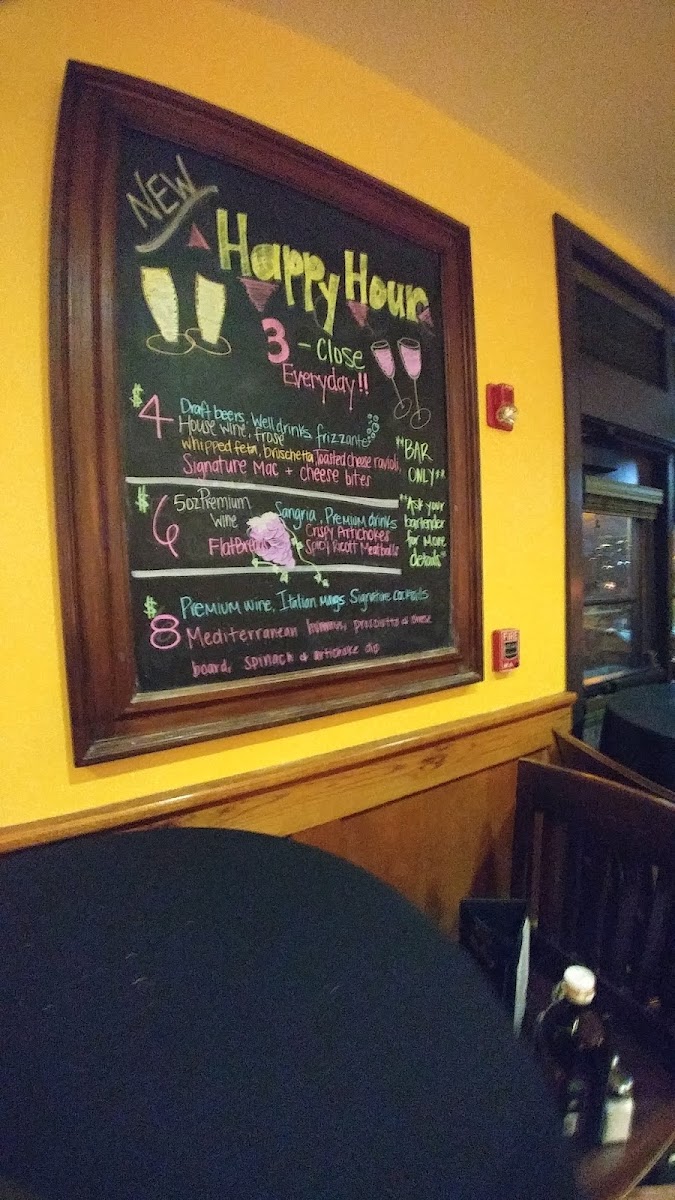 NEW
Happy Hour
3 - Close
Everyday!!
$4 Draft beers, Well drinks
House wine, frose frizzante
whipped feta, bruschetta, Toasted cheese ravioli,
Signature Mac + cheese bites
**BAR
ONLY**
$6 5oz Premium
wine
Sangria, Premium drinks
Crispy Artichokes
Flatbread
Spicy Ricott Meatballs
**Ask your
bartender
for More
details**
$8 Premium wine, Italian Mags Signature cocktails
Mediterranean hummus, prosciutto & cheese
board, spinach & artichoke dip
FIRE